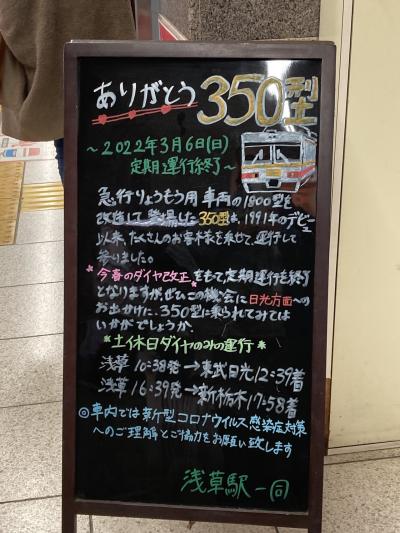 ありがとう 350型
～2022年3月6日(日)
定期運行終了～
急行りょうもう用車両の1800型を
改造して登場した350型は、1991年のデビュー
以来、たくさんのお客様を乗せて、運行して
参りました。
*今春のダイヤ改正*をもって定期運行を終了
となりますが、ぜひこの機会に日光方面への
お出かけに、350型に乗られてみては
いかがでしょうか。
*土休日ダイヤのみの運行*
浅草10:38発→東武日光12:39着
浅草16:39発→新栃木17:58着
◎車内では新型コロナウイルス感染症対策
へのご理解とご協力をお願い致します
浅草駅一同